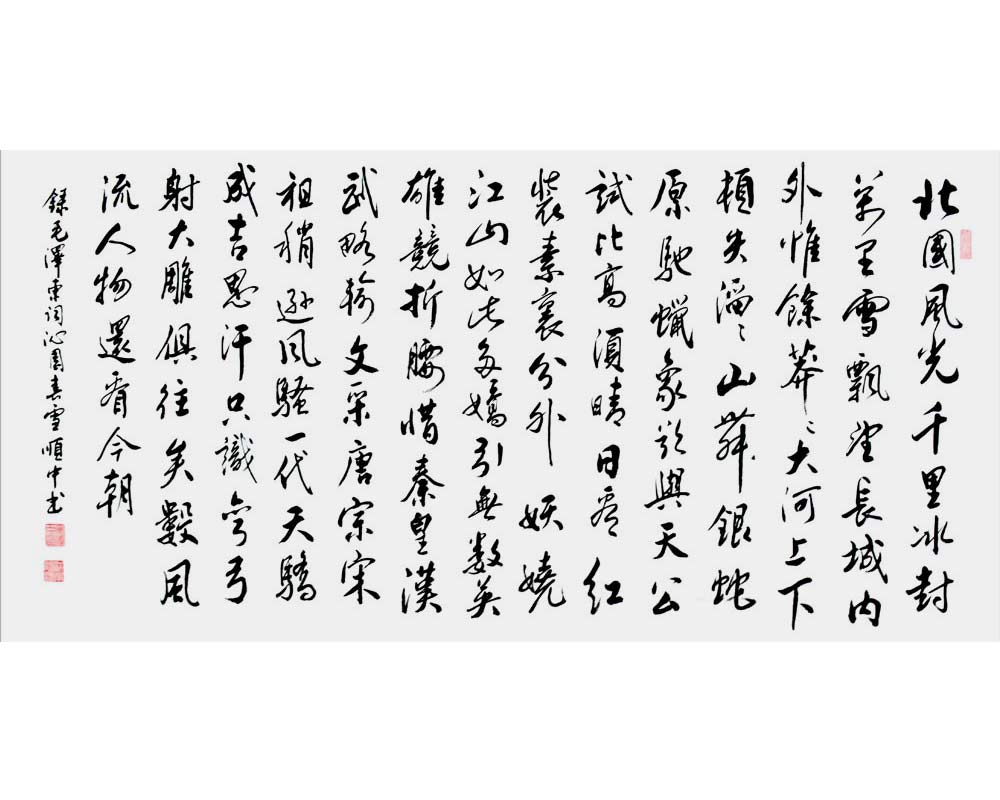 北國風光千里冰封
萬里雪飄望長城內
外惟餘莽〻大河上下
頓失滔〻山舞銀蛇
原馳蠟象欲與天公
試比高須晴日看紅
裝素裹分外妖嬈
江山如此多嬌引無數英
雄競折腰惜秦皇漢
武略輸文采唐宗宋
祖稍遜風騷一代天驕
成吉思汗只識彎弓
射大雕俱往矣數風
流人物還看今朝
錄毛澤東詞沁園春雪順中書